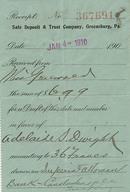 Receipt No. 367691
Safe Deposit & Trust Company, Greensburg, Pa.
Date JAN 4- 1910 190
Received from
Miss
the sum of 6.99
for a Draft of this date and number
in favor of
Adelaide S. Dwight
amounting to 36 francs
drawn on Imperial Ottoman
Bank